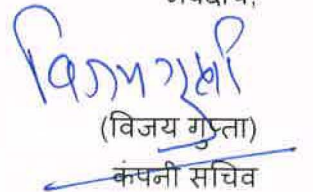 विजय गुप्ता
(विजय गुप्ता)
कंपनी सचिव